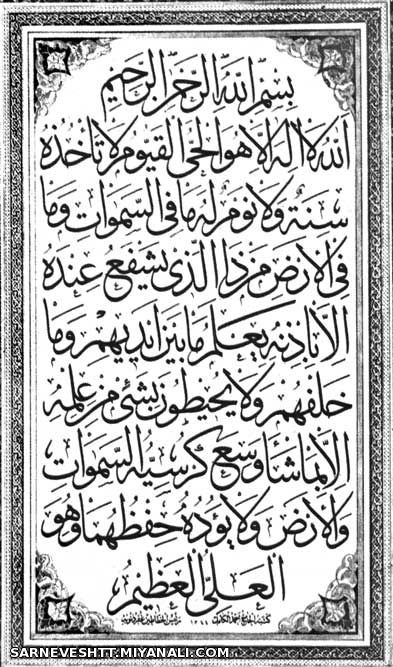 بسم الله الرحمن الرحيم
الله لا اله الا هو الحي القيوم لا تأخذه
سنة ولا نوم له ما في السموات وما
في الارض من ذا الذي يشفع عنده
الا باذنه يعلم ما بين ايديهم وما
خلفهم ولا يحيطون بشئ من علمه
الا بما شاء وسع كرسيه السموات
والارض ولا يؤده حفظهما وهو
العلي العظيم
SARNEVESHTT.MIYANALI.COM